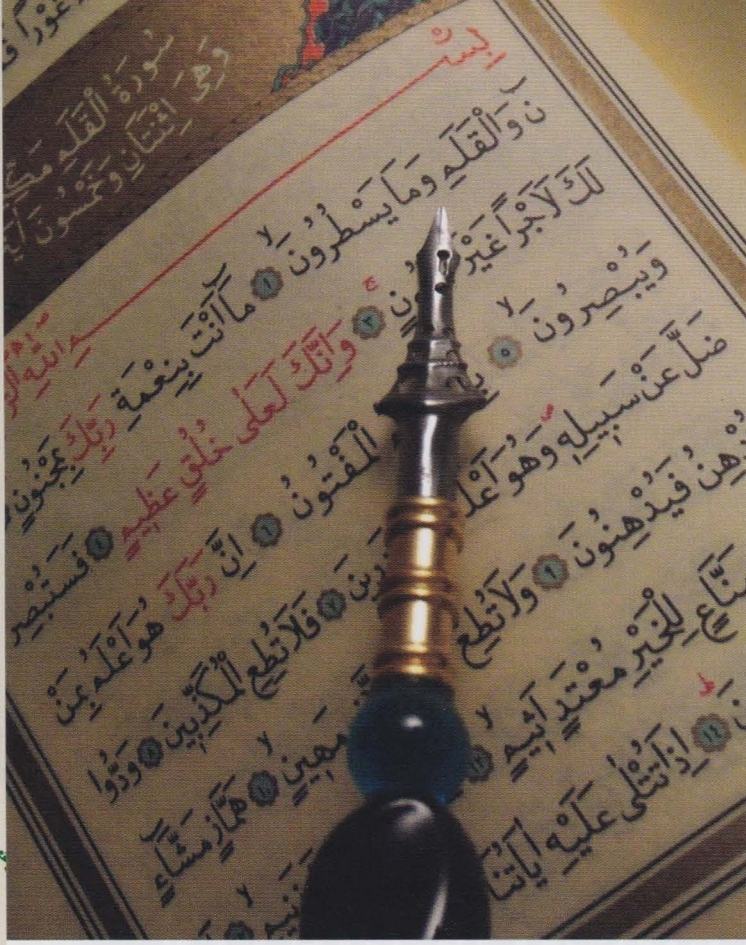 سُورَةُ الْقَلَمِ
وَهِيَ اثْنَتَانِ وَخَمْسُونَ
نۤ وَالْقَلَمِ وَمَا يَسْطُرُونَ ١ مَا اَنْتَ بِنِعْمَةِ رَبِّكَ بِمَجْنُونٍ
لَكَ لَاَجْرًا غَيْرَ ٣ وَاِنَّكَ لَعَلٰى خُلُقٍ عَظِيمٍ ٤ فَسَتُبْصِرُ
وَيُبْصِرُونَ ٥ الْمَفْتُونُ ٦ اِنَّ رَبَّكَ هُوَ اَعْلَمُ بِمَنْ
ضَلَّ عَنْ سَبِيلِهِ وَهُوَ ٧ فَلَا تُطِعِ الْمُكَذِّبِينَ ٨ وَدُّوا
فَيُدْهِنُونَ ٩ وَلَا تُطِعْ مَهِينٍ ١٠ هَمَّازٍ مَشَّاءٍ
لِلْخَيْرِ مُعْتَدٍ اَثِيمٍ ١٢
١٤ اِذَا تُتْلٰى عَلَيْهِ اٰيَاتُنَا